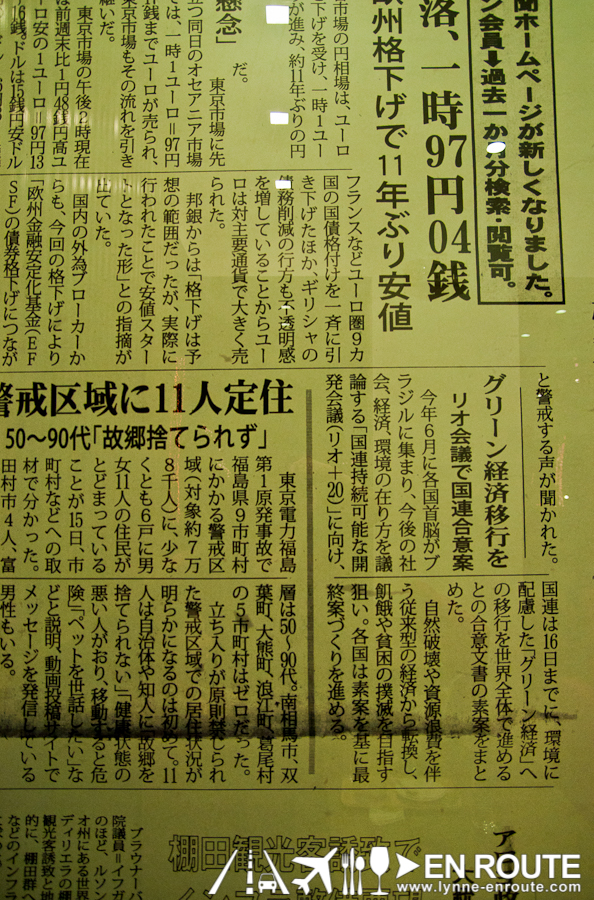 聞ホームページが新しくなりました。
ン会員➡過去一か月分検索・閲覧可。
落、一時97円04銭
欧州格下げで11年ぶり安値
市場の円相場は、ユーロ
下げを受け、一時1ユー
が進み、約11年ぶりの円
懸念」
だ。
東京市場に先
立つ同日のオセアニア市場
では、一時1ユーロ＝97円
銭までユーロが売られ、
東京市場もその流れを引き
継いだ。
東京市場の午後2時現在
は前週末比1円48銭円高ユ
ーロ安の1ユーロ＝97円13
16銭、ドルは15銭円安ドル
フランスなどユーロ圏9カ
国の国債格付けを一斉に引
き下げたほか、ギリシャの
債務削減の行方も不透明感
を増していることからユー
ロは対主要通貨で大きく売
られた。
邦銀からは「格下げは予
想の範囲だったが、実際に
行われたことで安値スター
トとなった形」との指摘が
出ていた。
国内の外為ブローカーか
らも、今回の格下げにより
「欧州金融安定化基金（EF
SF）の債券格下げにつなが
と警戒する声が聞かれた。
グリーン経済移行を
リオ会議で国連合意案
今年6月に各国首脳がブ
ラジルに集まり、今後の社
会、経済、環境の在り方を議
論する「国連持続可能な開
発会議（リオ＋20）」に向け、
国連は16日までに、環境に
配慮した「グリーン経済」へ
の移行を世界全体で進める
との合意文書の素案をまと
めた。
自然破壊や資源浪費を伴
う従来型の経済から転換し、
飢餓や貧困の撲滅を目指す
狙い。各国は素案を基に最
終案づくりを進める。
警戒区域に11人定住
50〜90代「故郷捨てられず」
東京電力福島
第1原発事故で
福島県9市町村
にかかる警戒区
域（対象約7万
8千人）に、少な
くとも6戸に男
女11人の住民が
とどまっている
ことが15日、市
町村などへの取
材で分かった。
田村市4人、富
層は50〜90代。南相馬市、双
葉町、大熊町、浪江町、葛尾村
の5市町村はゼロだった。
立ち入りが原則禁じられ
た警戒区域での居住状況が
明らかになるのは初めて。11
人は自治体や知人に「故郷を
捨てられない」「健康状態の
悪い人がおり、移動すると危
険」「ペットを世話したい」な
どと説明、動画投稿サイトで
メッセージを発信している
男性もいる。
棚田観光客誘致で
ブラウナーバ
院議員＝イフガ
のほど、ルソン
オ州にある世界
ディリエラの棚
観光客誘致と地
的に、棚田群へ
などのインフラ
EN ROUTE
www.lynne-enroute.com